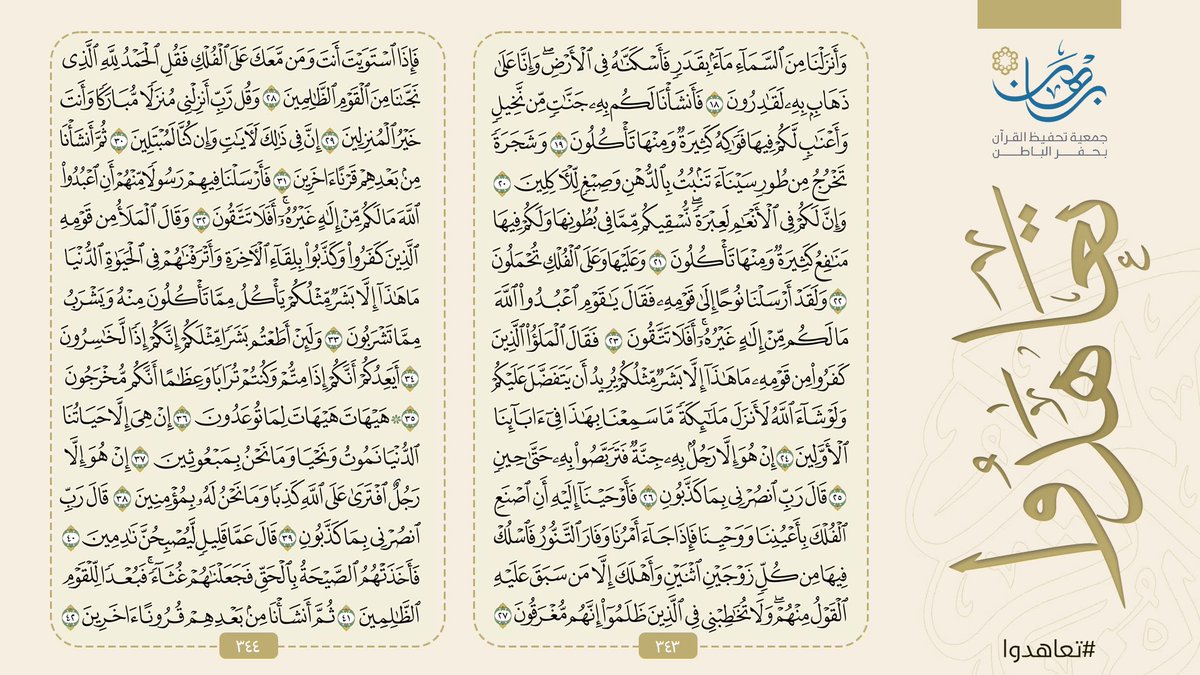 برهان
جمعية تحفيظ القرآن
بحفر الباطن
تعاهدوا
#تعاهدوا
وَأَنزَلْنَا مِنَ ٱلسَّمَآءِ مَآءًۢ بِقَدَرٍ فَأَسْكَنَّـٰهُ فِى ٱلْأَرْضِ ۖ وَإِنَّا عَلَىٰ
ذَهَابٍۭ بِهِۦ لَقَـٰدِرُونَ ١٨ فَأَنشَأْنَا لَكُم بِهِۦ جَنَّـٰتٍ مِّن نَّخِيلٍ
وَأَعْنَـٰبٍ لَّكُمْ فِيهَا فَوَٰكِهُ كَثِيرَةٌ وَمِنْهَا تَأْكُلُونَ ١٩ وَشَجَرَةً
تَخْرُجُ مِن طُورِ سَيْنَآءَ تَنۢبُتُ بِٱلدُّهْنِ وَصِبْغٍ لِّلْـَٔاكِلِينَ ٢٠
وَإِنَّ لَكُمْ فِى ٱلْأَنْعَـٰمِ لَعِبْرَةً ۖ نُّسْقِيكُم مِّمَّا فِى بُطُونِهَا وَلَكُمْ فِيهَا
مَنَـٰفِعُ كَثِيرَةٌ وَمِنْهَا تَأْكُلُونَ ٢١ وَعَلَيْهَا وَعَلَى ٱلْفُلْكِ تُحْمَلُونَ
٢٢ وَلَقَدْ أَرْسَلْنَا نُوحًا إِلَىٰ قَوْمِهِۦ فَقَالَ يَـٰقَوْمِ ٱعْبُدُوا۟ ٱللَّهَ
مَا لَكُم مِّنْ إِلَـٰهٍ غَيْرُهُۥٓ ۖ أَفَلَا تَتَّقُونَ ٢٣ فَقَالَ ٱلْمَلَؤُا۟ ٱلَّذِينَ
كَفَرُوا۟ مِن قَوْمِهِۦ مَا هَـٰذَآ إِلَّا بَشَرٌ مِّثْلُكُمْ يُرِيدُ أَن يَتَفَضَّلَ عَلَيْكُمْ
وَلَوْ شَآءَ ٱللَّهُ لَأَنزَلَ مَلَـٰٓئِكَةً مَّا سَمِعْنَا بِهَـٰذَا فِىٓ ءَابَآئِنَا
ٱلْأَوَّلِينَ ٢٤ إِنْ هُوَ إِلَّا رَجُلٌۢ بِهِۦ جِنَّةٌ فَتَرَبَّصُوا۟ بِهِۦ حَتَّىٰ حِينٍ
٢٥ قَالَ رَبِّ ٱنصُرْنِى بِمَا كَذَّبُونِ ٢٦ فَأَوْحَيْنَآ إِلَيْهِ أَنِ ٱصْنَعِ
ٱلْفُلْكَ بِأَعْيُنِنَا وَوَحْيِنَا فَإِذَا جَآءَ أَمْرُنَا وَفَارَ ٱلتَّنُّورُ ۙ فَٱسْلُكْ
فِيهَا مِن كُلٍّ زَوْجَيْنِ ٱثْنَيْنِ وَأَهْلَكَ إِلَّا مَن سَبَقَ عَلَيْهِ
ٱلْقَوْلُ مِنْهُمْ ۖ وَلَا تُخَـٰطِبْنِى فِى ٱلَّذِينَ ظَلَمُوٓا۟ ۖ إِنَّهُم مُّغْرَقُونَ ٢٧
٣٤٣
فَإِذَا ٱسْتَوَيْتَ أَنتَ وَمَن مَّعَكَ عَلَى ٱلْفُلْكِ فَقُلِ ٱلْحَمْدُ لِلَّهِ ٱلَّذِى
نَجَّىٰنَا مِنَ ٱلْقَوْمِ ٱلظَّـٰلِمِينَ ٢٨ وَقُل رَّبِّ أَنزِلْنِى مُنزَلًا مُّبَارَكًا وَأَنتَ
خَيْرُ ٱلْمُنزِلِينَ ٢٩ إِنَّ فِى ذَٰلِكَ لَـَٔايَـٰتٍ وَإِن كُنَّا لَمُبْتَلِينَ ٣٠ ثُمَّ أَنشَأْنَا
مِنۢ بَعْدِهِمْ قَرْنًا ءَاخَرِينَ ٣١ فَأَرْسَلْنَا فِيهِمْ رَسُولًا مِّنْهُمْ أَنِ ٱعْبُدُوا۟
ٱللَّهَ مَا لَكُم مِّنْ إِلَـٰهٍ غَيْرُهُۥٓ ۖ أَفَلَا تَتَّقُونَ ٣٢ وَقَالَ ٱلْمَلَأُ مِن قَوْمِهِ
ٱلَّذِينَ كَفَرُوا۟ وَكَذَّبُوا۟ بِلِقَآءِ ٱلْـَٔاخِرَةِ وَأَتْرَفْنَـٰهُمْ فِى ٱلْحَيَوٰةِ ٱلدُّنْيَا
مَا هَـٰذَآ إِلَّا بَشَرٌ مِّثْلُكُمْ يَأْكُلُ مِمَّا تَأْكُلُونَ مِنْهُ وَيَشْرَبُ
مِمَّا تَشْرَبُونَ ٣٣ وَلَئِنْ أَطَعْتُم بَشَرًا مِّثْلَكُمْ إِنَّكُمْ إِذًا لَّخَـٰسِرُونَ
٣٤ أَيَعِدُكُمْ أَنَّكُمْ إِذَا مِتُّمْ وَكُنتُمْ تُرَابًا وَعِظَـٰمًا أَنَّكُم مُّخْرَجُونَ
٣٥ ۞ هَيْهَاتَ هَيْهَاتَ لِمَا تُوعَدُونَ ٣٦ إِنْ هِىَ إِلَّا حَيَاتُنَا
ٱلدُّنْيَا نَمُوتُ وَنَحْيَا وَمَا نَحْنُ بِمَبْعُوثِينَ ٣٧ إِنْ هُوَ إِلَّا
رَجُلٌ ٱفْتَرَىٰ عَلَى ٱللَّهِ كَذِبًا وَمَا نَحْنُ لَهُۥ بِمُؤْمِنِينَ ٣٨ قَالَ رَبِّ
ٱنصُرْنِى بِمَا كَذَّبُونِ ٣٩ قَالَ عَمَّا قَلِيلٍ لَّيُصْبِحُنَّ نَـٰدِمِينَ ٤٠
فَأَخَذَتْهُمُ ٱلصَّيْحَةُ بِٱلْحَقِّ فَجَعَلْنَـٰهُمْ غُثَآءً ۚ فَبُعْدًا لِّلْقَوْمِ
ٱلظَّـٰلِمِينَ ٤١ ثُمَّ أَنشَأْنَا مِنۢ بَعْدِهِمْ قُرُونًا ءَاخَرِينَ ٤٢
٣٤٤